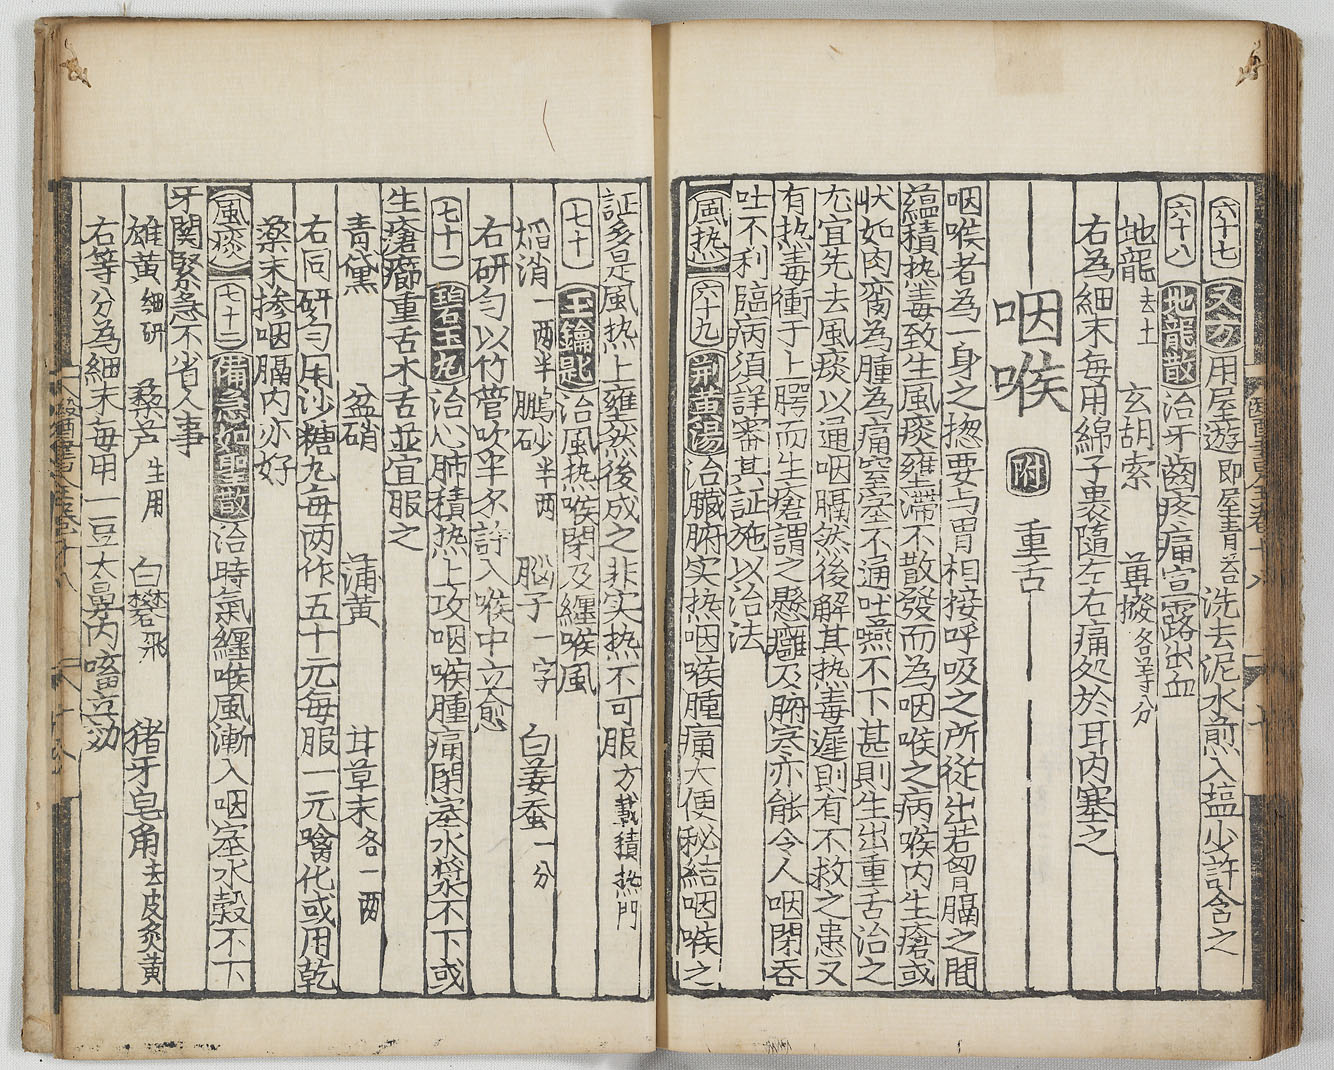 六十七 又方 用屋遊即屋青苔洗去泥水煎入塩少許含之
六十八 地龍散 治牙齒疼痛宣露出血
地龍去土 玄胡索 蓽撥各等分
右為細末毎用綿子裹隨左右痛処於耳内塞之
咽喉 附 重舌
咽喉者為一身之揔要与胃相接呼吸之所從出若胷膈之間
蘊積热毒致生風痰壅滯不散發而為咽喉之病喉内生瘡或
状如肉臠為腫為痛窒塞不通吐嚥不下甚則生出重舌治之
尤宜先去風痰以通咽膈然後解其热毒遲則有不救之患又
有热毒衝于上腭而生瘡謂之懸癰及腑寒亦能令人咽閉吞
吐不利臨病須詳審其証施以治法
風热 六十九 荆黄湯 治臓腑实热咽喉腫痛大便秘結咽喉之
証多是風热上壅然後成之非实热不可服方載積热門
七十 玉鑰匙 治風热喉閉及纏喉風
焰消一两半 鵬砂半两 脳子一字 白姜蚕一分
右研勻以竹管吹半錢許入喉中立愈
七十一 碧玉丸 治心肺積热上攻咽喉腫痛閉塞水漿不下或
生瘡癤重舌木舌並宜服之
青黛 盆硝 蒲黄 甘草末各一两
右同研勻用沙糖丸毎两作五十元毎服一元噙化或用乾
藥末掺咽膈内亦好
風痰 七十二 備急如聖散 治時氣纏喉風漸入咽塞水穀不下
牙関緊急不省人事
雄黄細研 藜芦生用 白礬飛 猪牙皂角去皮炙黄
右等分為細末毎用一豆大鼻内㗜立効